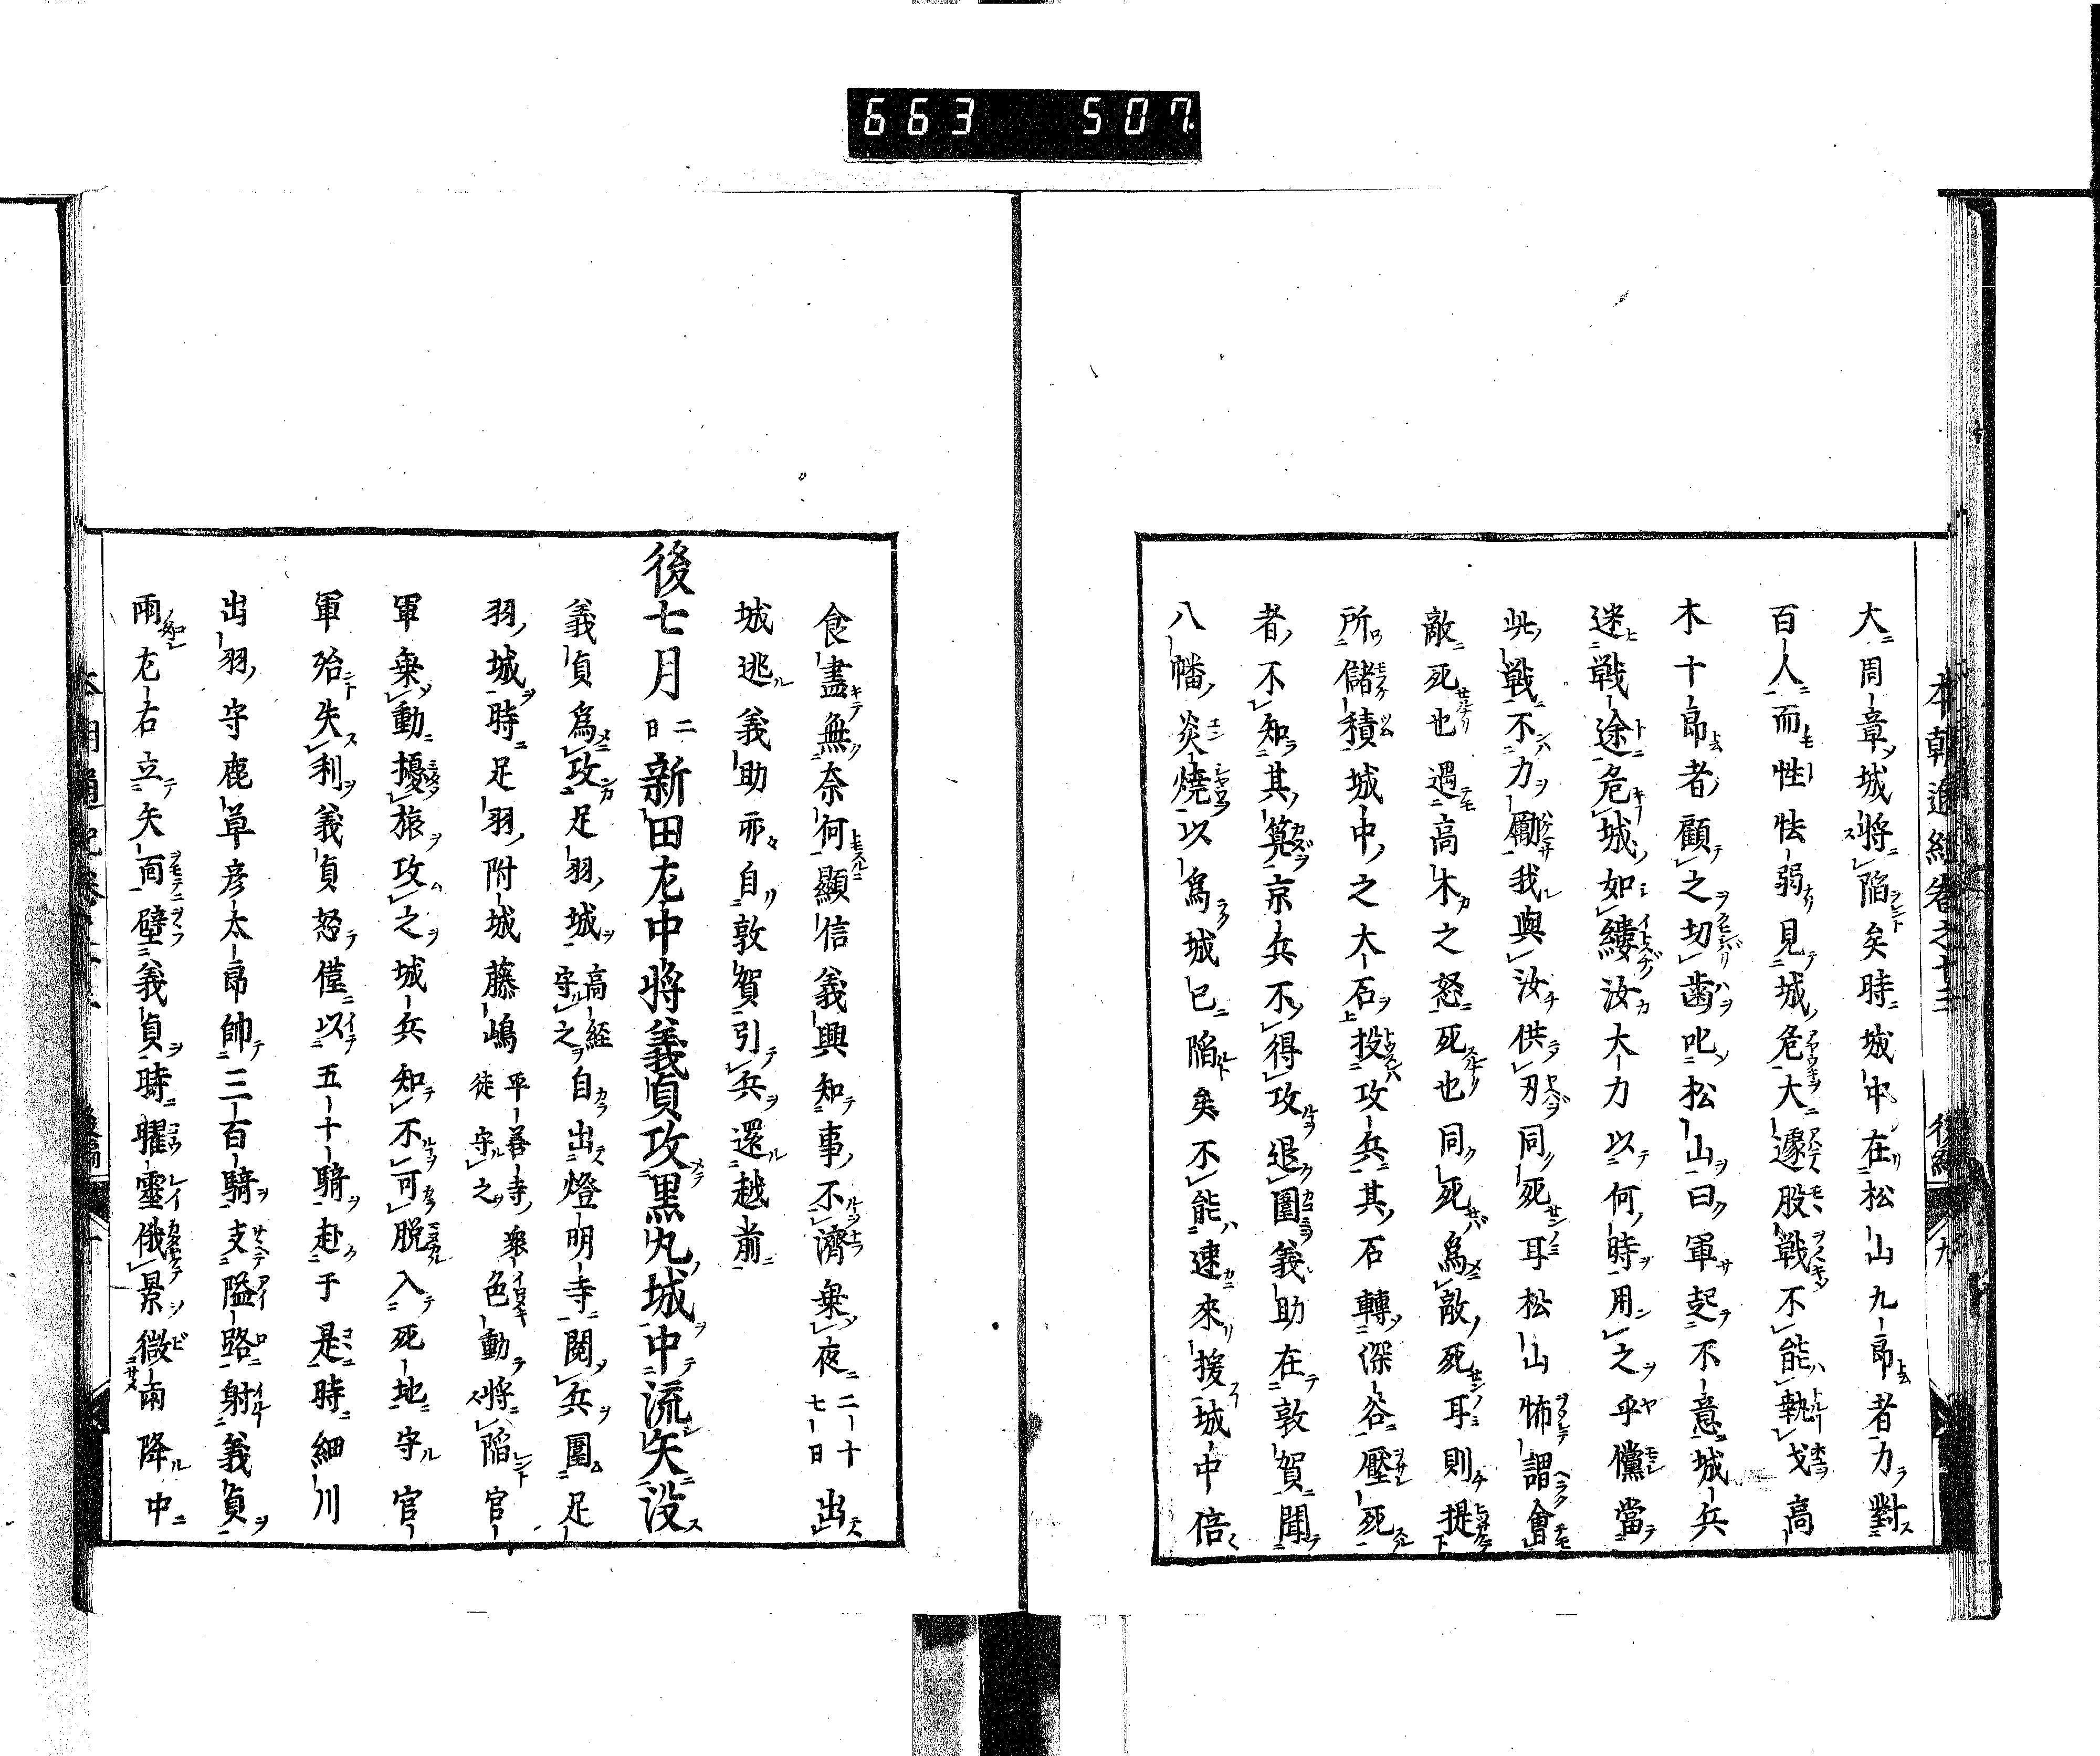 663 507
本朝通紀卷之十三 後編 九
大周章城將陷矣時城中在松山九郎者力對
百人而性怯弱見城危大遽股戰不能執戈高
木十郎者顧之切齒叱松山曰軍起不意城兵
迷戰途危城如縷汝大力以何時用之乎儻當
此戰不力勵我與汝供刃同死耳松山怖謂會
敵死也遇高木之怒死也同死爲敵死耳則提
所儲積城中之大石投攻兵其石轉深谷壓死
者不知其筭京兵不得攻退圍義助在敦賀聞
八幡炎燒以爲城已陷矣不能速來援城中倍
食盡無奈何顯信義興知事不濟乗夜二十七日出
城逃義助亦自敦賀引兵還越前
後七月二日新田左中將義貞攻黒丸城中流矢没
義貞爲攻足羽城高経守之自出燈明寺閲兵圍足
羽城時足羽附城藤嶋平善寺衆徒守之衆色動將陷官
軍乗動擾旅攻之城兵知不可脱入死地守官
軍殆失利義貞怒僅以五十騎赴于是時細川
出羽守鹿草彦太郎帥三百騎支隘路射義貞
雨左右立矢面壁義貞時曜靈俄景微雨降中